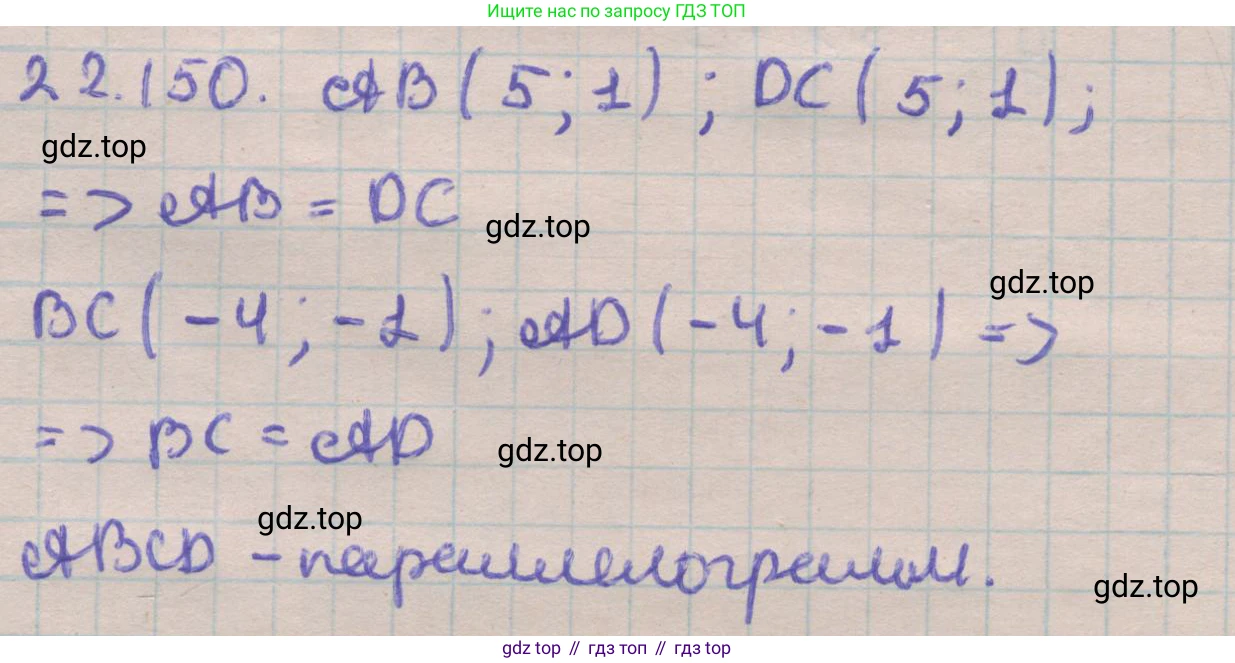 Ищите нас по запросу ГДЗ ТОП
22.150. AB(5;1); DC(5;1);
gdz.top
=> AB = DC
gdz.top
gdz.top
BC(-4;-1); AD(-4;-1) =>
=> BC = AD
gdz.top
gdz.top
ABCD - параллелограмм.
gdz.top
gdz top // гдз топ // гдз top